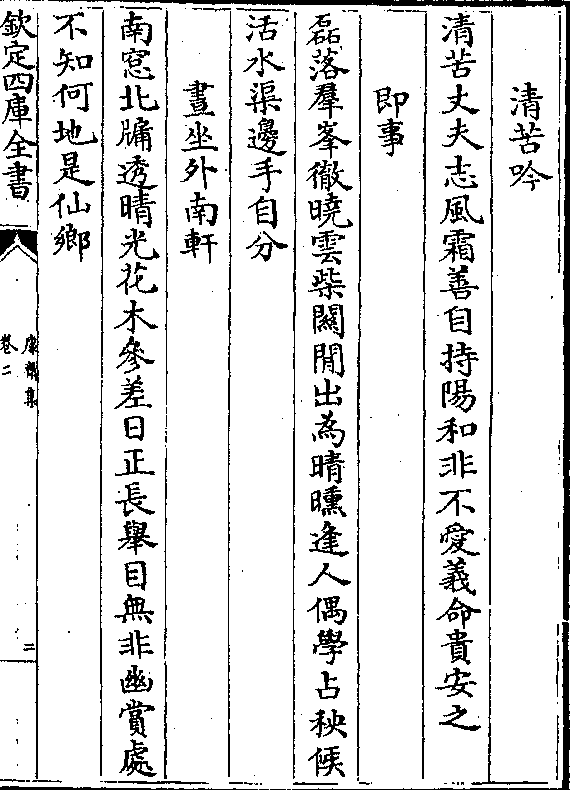 清苦吟
清苦丈夫志風霜善自持陽和非不愛義命貴安之
即事
磊落羣峯徹曉雲柴關閒出為晴曛逢人偶學占秧候
活水渠邊手自分
晝坐外南軒
南窓北牗透晴光花木參差日正長舉目無非幽賞處
不知何地是仙鄉
欽定四庫全書
卷二
二